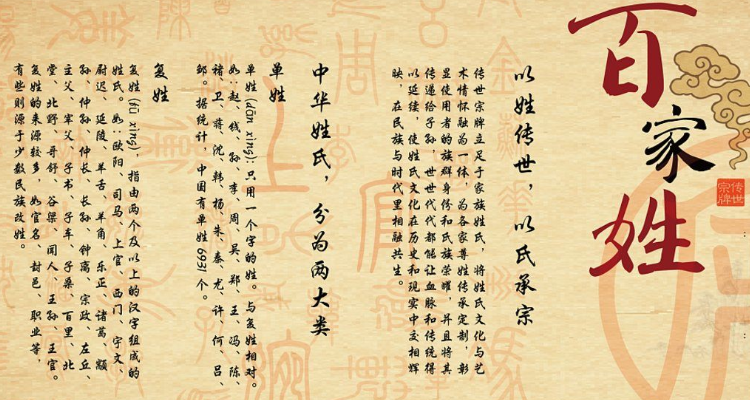 百家姓
传世
宗牌
以姓传世，以氏承宗
传世宗牌立足于家族姓氏，将姓氏文化与艺
术情怀融为一体，为各家尊姓传承定制，彰
显使用者的族群身份和氏族荣耀，并且将其
传递给子孙，世世代代都能让血脉和传统得
以延续，使姓氏文化在历史和现实中交相辉
映，在民族与时代里相融共生。
中华姓氏，分为两大类
单姓
单姓(dān xìng)：只用一个字的姓。与复姓相对。
如：赵、钱、孙、李、周、吴、郑、王、冯、陈、
褚、卫、蒋、沈、韩、杨、朱、秦、尤、许、何、吕、
邹。据统计，中国有单姓6931个。
复姓
复姓(fù xìng)，指由两个及以上的汉字组成的
姓氏。如：欧阳、司马、上官、西门、宇文、
尉迟、延陵、羊舌、羊角、乐正、诸葛、颛
孙、仲孙、仲长、长孙、钟离、宗政、左丘、
主父、宰父、子书、子车、子桑、百里、北
堂、北野、哥舒、谷梁、闻人、王孙、王官。
复姓的来源较多，如官名、封邑、职业等，
有些则源于少数民族改姓。